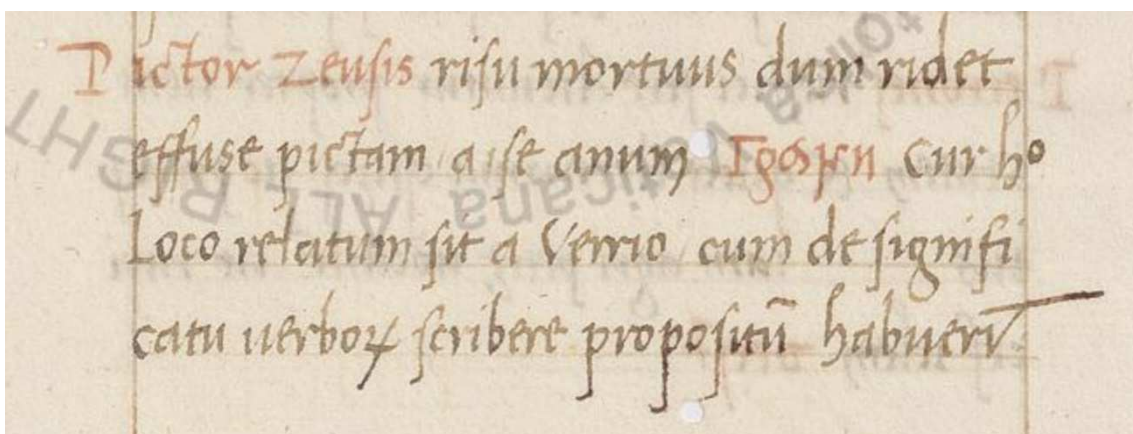 Pictor Zeusis risu mortuus dum ridet
effuse pictam a se anum γραῦν Cur hº
Loco relatum sit a Verrio cum de signifi
catu uerboꝝ scribere propositū habuerī